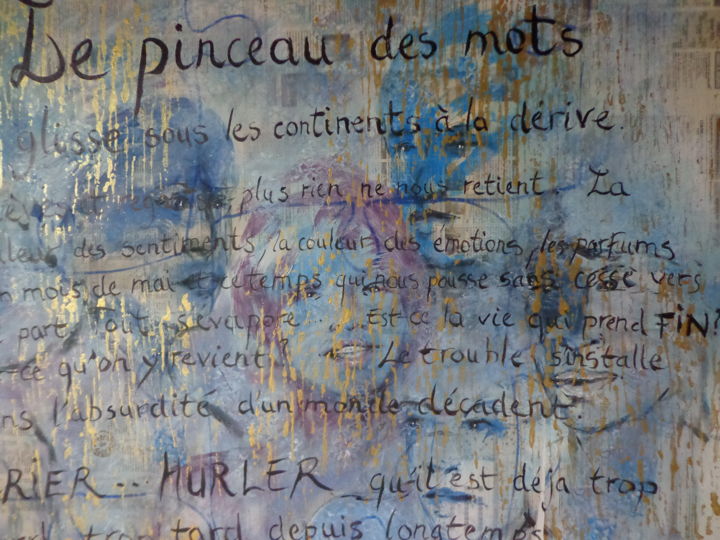 Le pinceau des mots
glisse sous les continents à la dérive.
plus rien ne nous retient. La
des sentiments, la couleur des émotions, les parfums
mois de mai et ce temps qui nous pousse sans cesse vers
part. Tout s'évapore..... Est ce la vie qui prend FIN?
ce qu'on y revient? Le trouble s'installe
l'absurdité d'un monde décadent.
HURLER qu'il est déjà trop
tard depuis longtemps